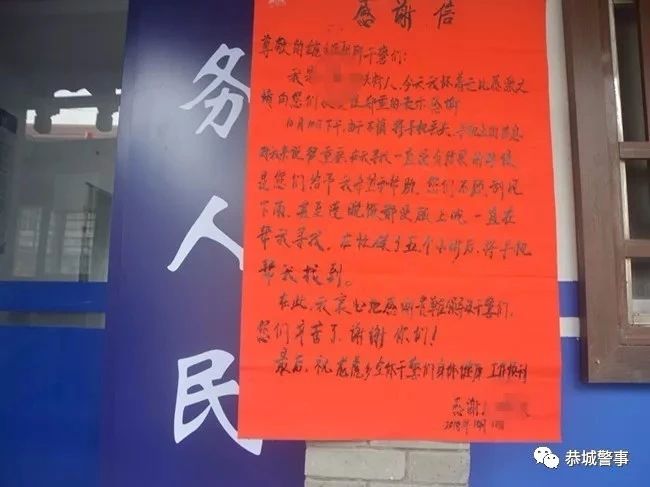 务人民
感谢信
尊敬的 派出所干警们:
我是 大街人,今天我怀着无比感激之
情向您们 表示感谢
10月 日下午,由于不慎将手机丢失,手机上的信息
对我来说很重要,在我寻找一直没有结果的时候
是您们给予我 帮助,您们不顾刮风
下雨,甚至连晚饭都 顾上吃,一直在
帮我寻找,在 了五个小时后,将手机
帮我找到。
在此,我衷心地感谢 领导及干警们,
您们辛苦了,谢谢你们!
最后,祝龙虎乡全体干警们身体健康 工作
感谢人
2018年10月 日
恭城警事